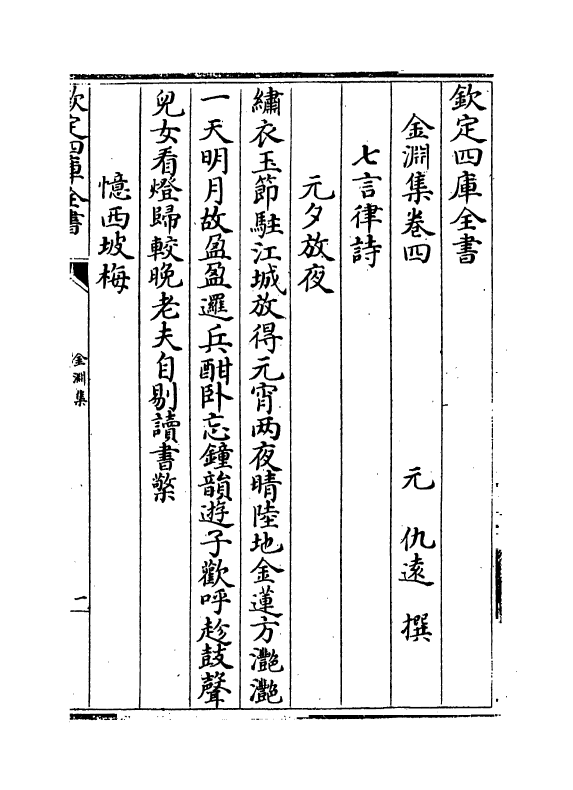 欽定四庫全書
金淵集卷四　元　仇遠　撰
七言律詩
元夕放夜
繡衣玉節駐江城放得元宵两夜晴陸地金蓮方灔灔
一天明月故盈盈邏兵酣卧忘鐘韻遊子歡呼趁鼓聲
兒女看燈歸較晚老夫自剔讀書檠
憶西坡梅
欽定四庫全書
金淵集
二